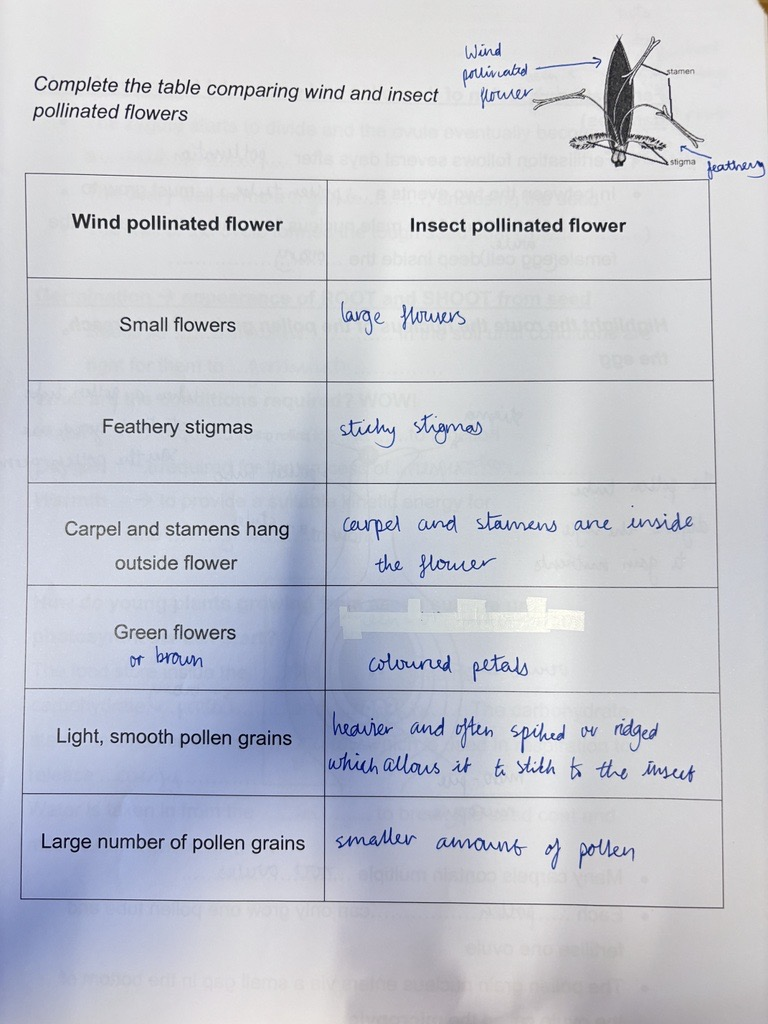 Wind
pollinated
flower
stamen
Complete the table comparing wind and insect
pollinated flowers
stigma
feathery
Wind pollinated flower
Insect pollinated flower
Small flowers
large flowers
Feathery stigmas
sticky stigmas
Carpel and stamens hang
outside flower
carpel and stamens are inside
the flower
Green flowers
or brown
coloured petals
Light, smooth pollen grains
heavier and often spiked or ridged
which allows it to stick to the insect
Large number of pollen grains
smaller amount of pollen